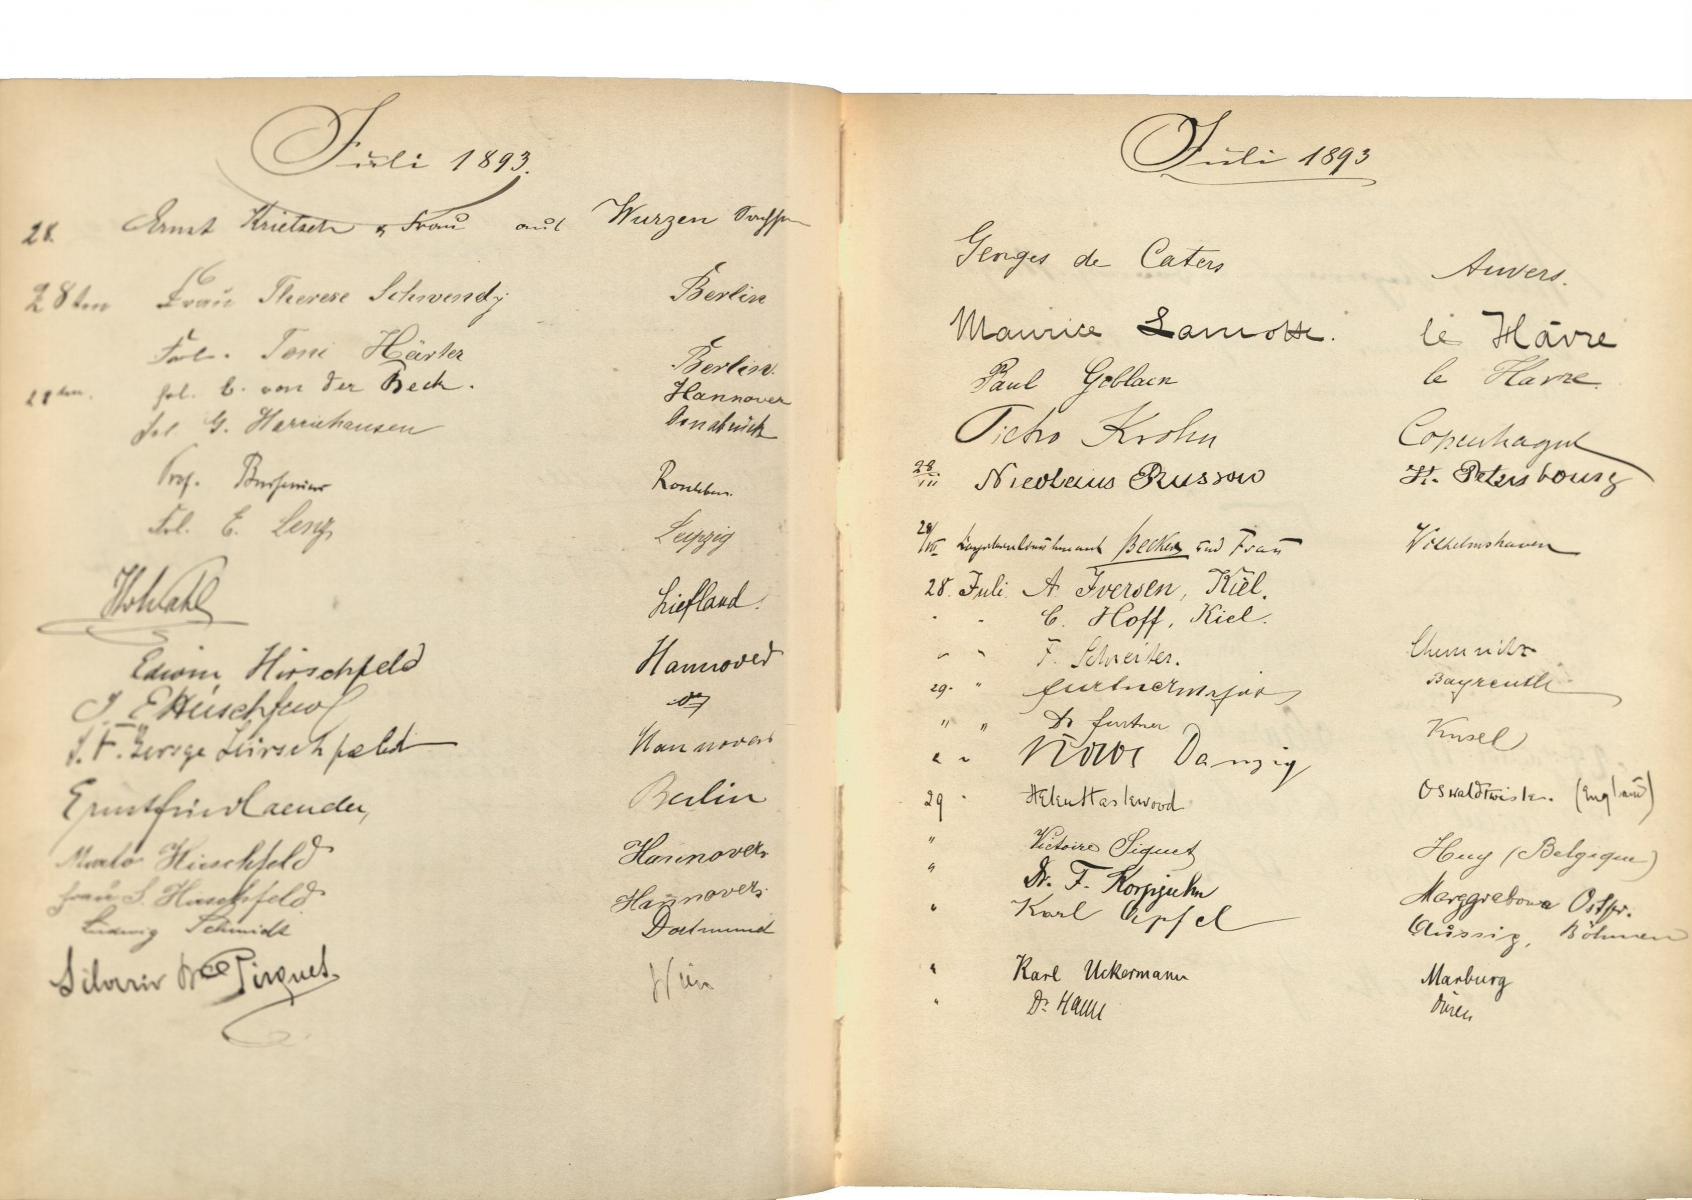 Juli 1893.
28. Ernst Krietsch u. Frau aus Wurzen Sachsen
28ten Frau Therese Schwendy Berlin
Frl. Toni Härter Berlin.
28ten. Frl. E. von der Beck. Hannover
Frl. G. Harriehausen Osnabrück
Prof.
Frl. E. Lenz Leipzig
Liefland.
Edwin Hirschfeld Hannover
do
Hirschfeld Hannover
Ernst Friedlaender, Berlin
Hirschfeld Hannover
Frau S. Hirschfeld Hannover
Ludwig Schmidt Dortmund
Pirquet Wien
Juli 1893
Georges de Caters Anvers.
Maurice Lamotte. le Hâvre
Paul Goblain le Havre.
Pietro Krohn Copenhague
28/VII Nicolaus Russow St. Petersbourg
28/VII Kapitänleutnant Becker und Frau Wilhelmshaven
28. Juli. A. Iversen, Kiel.
" " C. Hoff, Kiel.
" " F. Schreiter. Chemnitz
29. " Bayreuth
" " Dr Kusel
" " Danzig
29 " Helen Haslewood Oswaldtwistle. (England)
" Victoire Siquet Huy (Belgique)
" Dr. F. Korpjuhn Marggrabowa Ostpr.
" Karl Apfel Aussig, Böhmen
" Karl Uckermann Marburg
" Dr. Düren